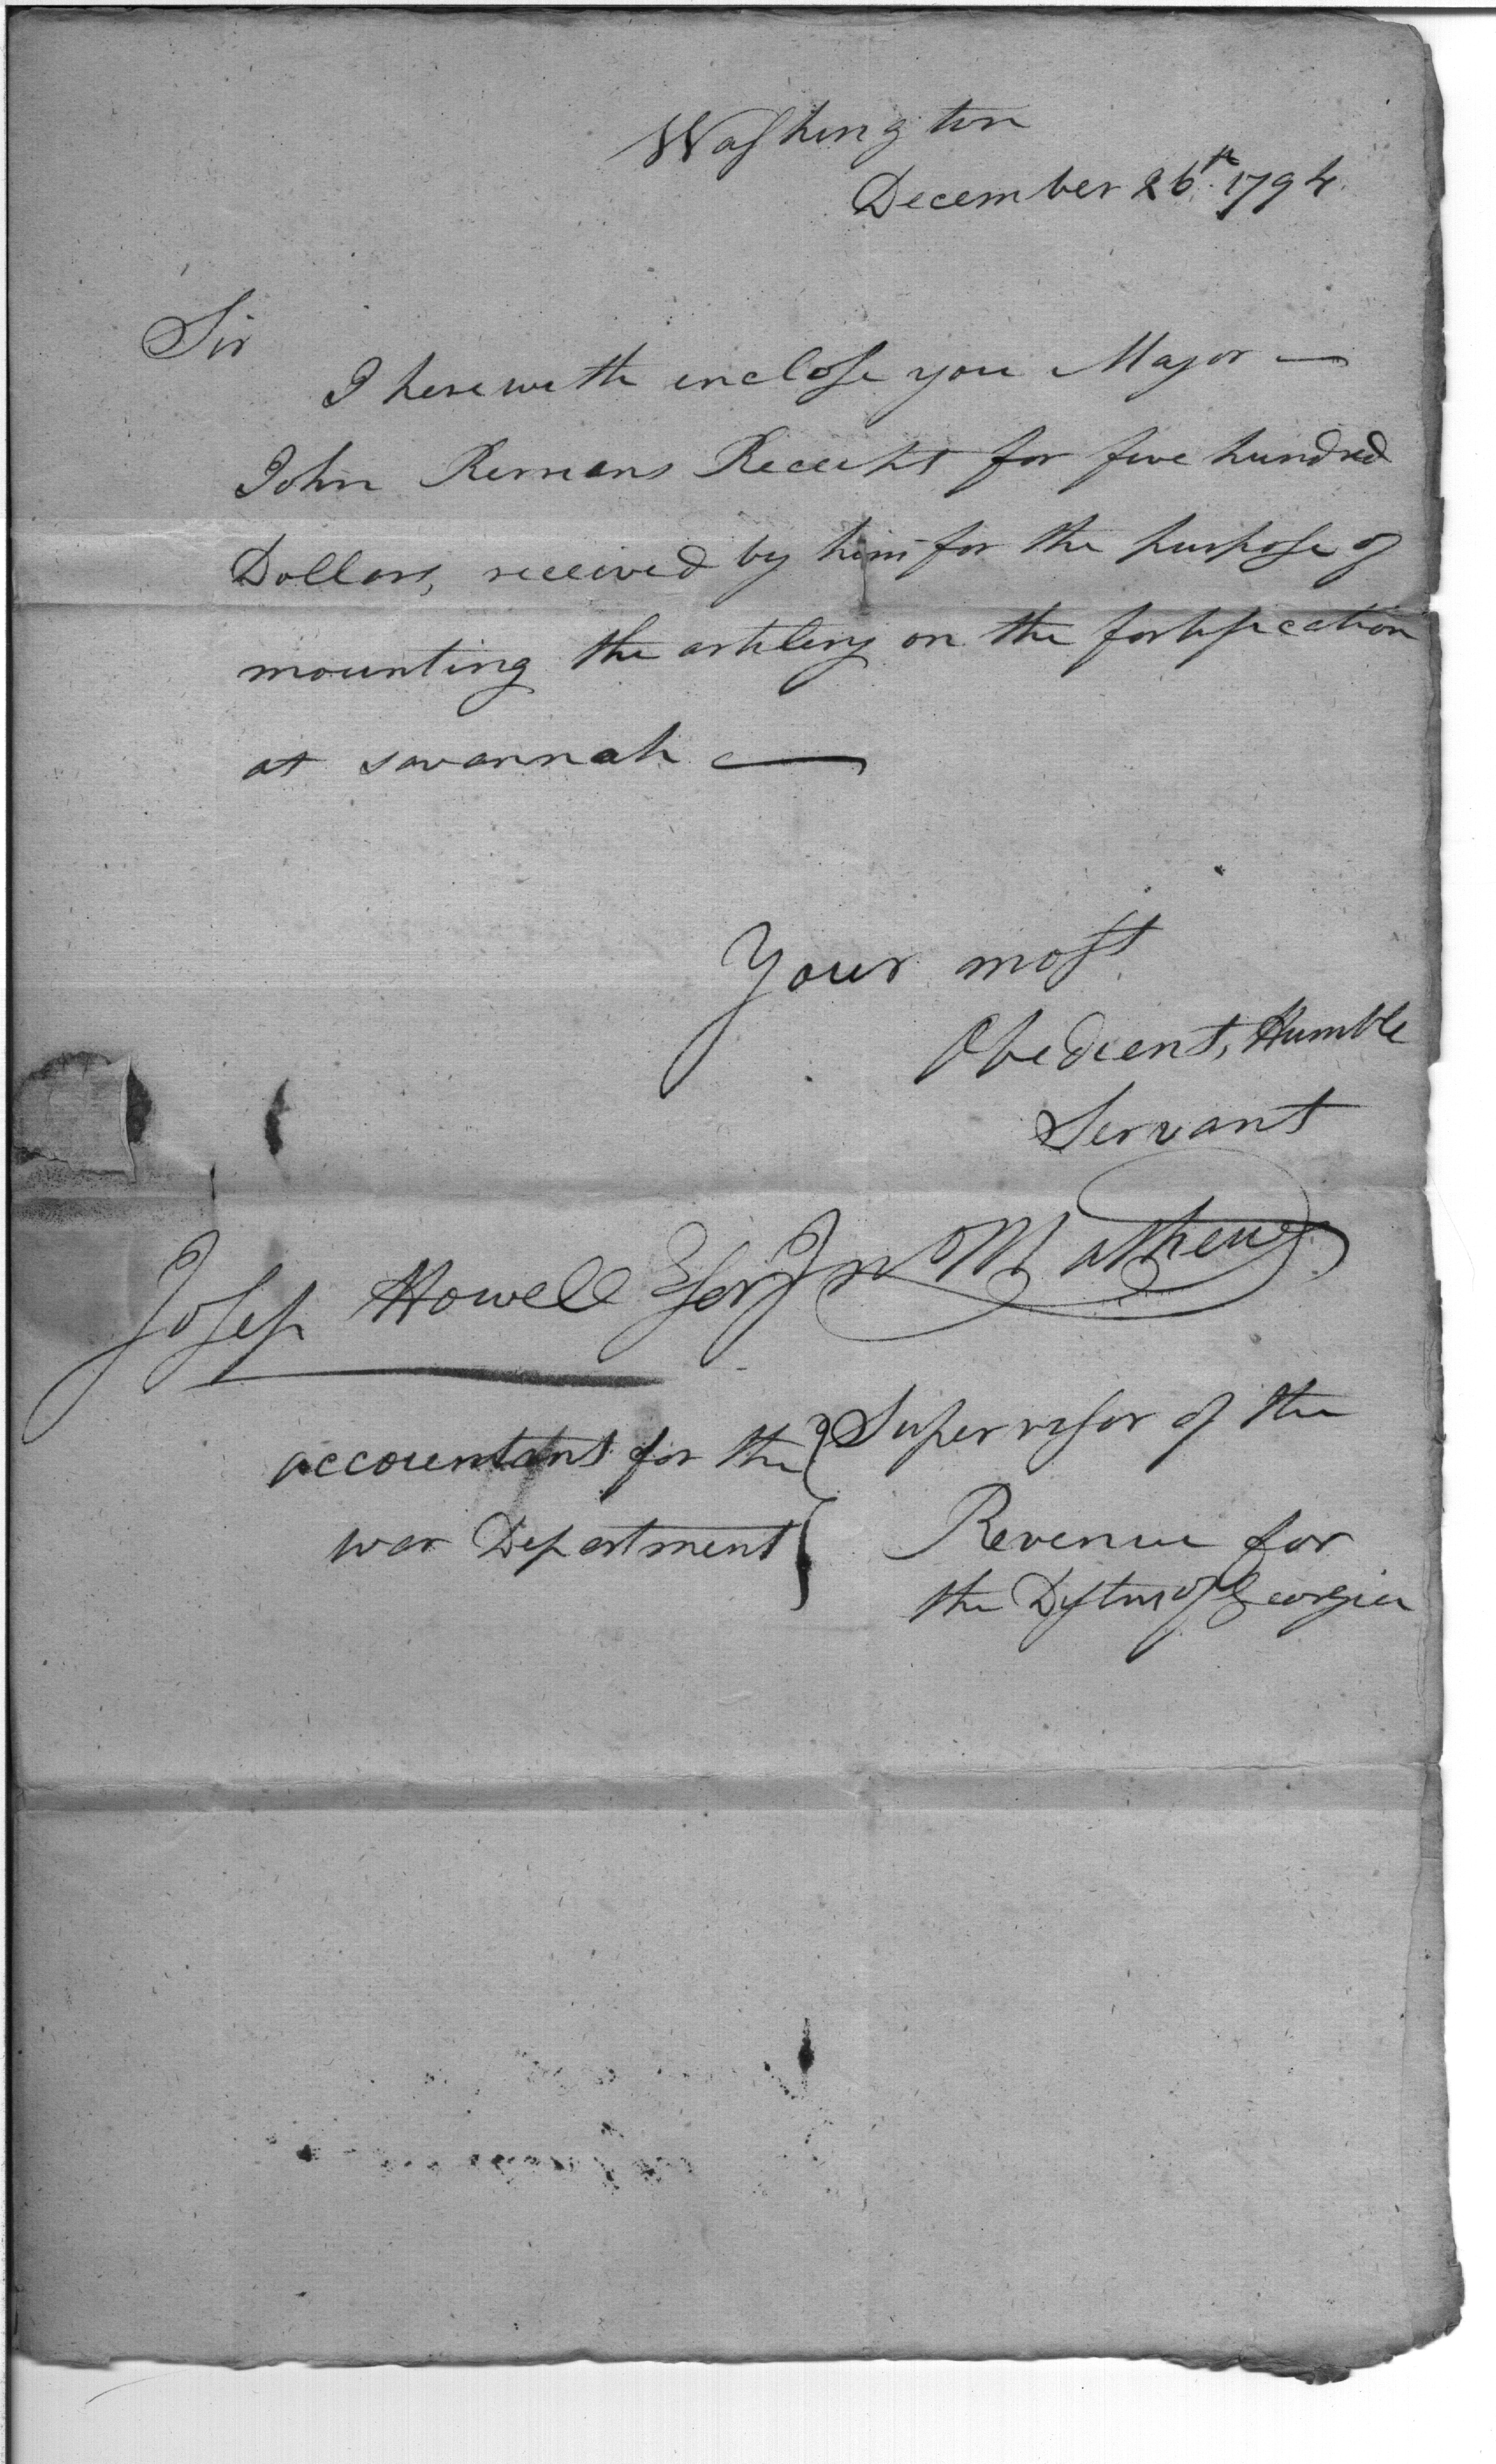 Washington
December 26th. 1794
Sir
I herewith inclose you Major —
John Bermans Receipt for five hundred
Dollars, received by him for the purpose of
mounting the artilery on the fortification
at savannah —
Your most
Obedient, Humble
Servant
Jno Mathews
Josep Howell Esqr
accountant for the
war Department
Supervisor of the
Revenue for
the Distric of Georgia